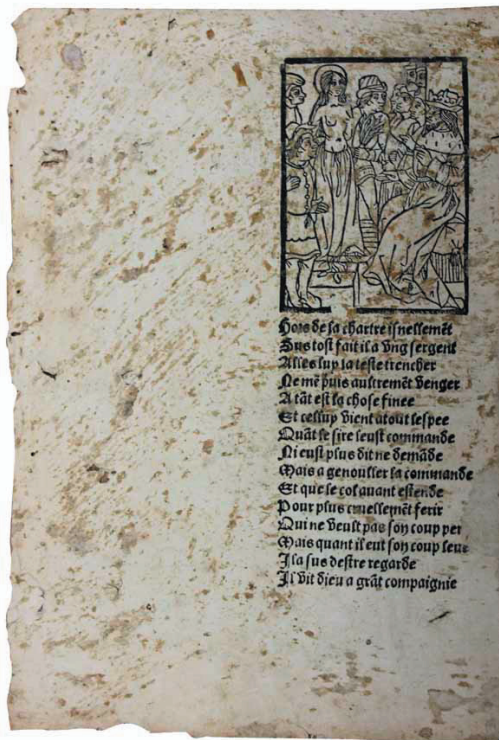 Hors de sa chartre isnellemẽt
Sus tost fait il a vng sergent
Alles luy la teste trencher
Ne mẽ puis aultremẽt venger
A tãt est la chose finee
Et celluy vient atout lespee
Quãt le sire leust commande
Ni eust plus dit ne demãde
Mais a genouller la commande
Et que le col auant estende
Pour plus cruellemẽt ferir
Qui ne veult pas son coup per
Mais quant il eut son coup leue
Il a sus destre regarde
Il vit dieu a grãt compaignie